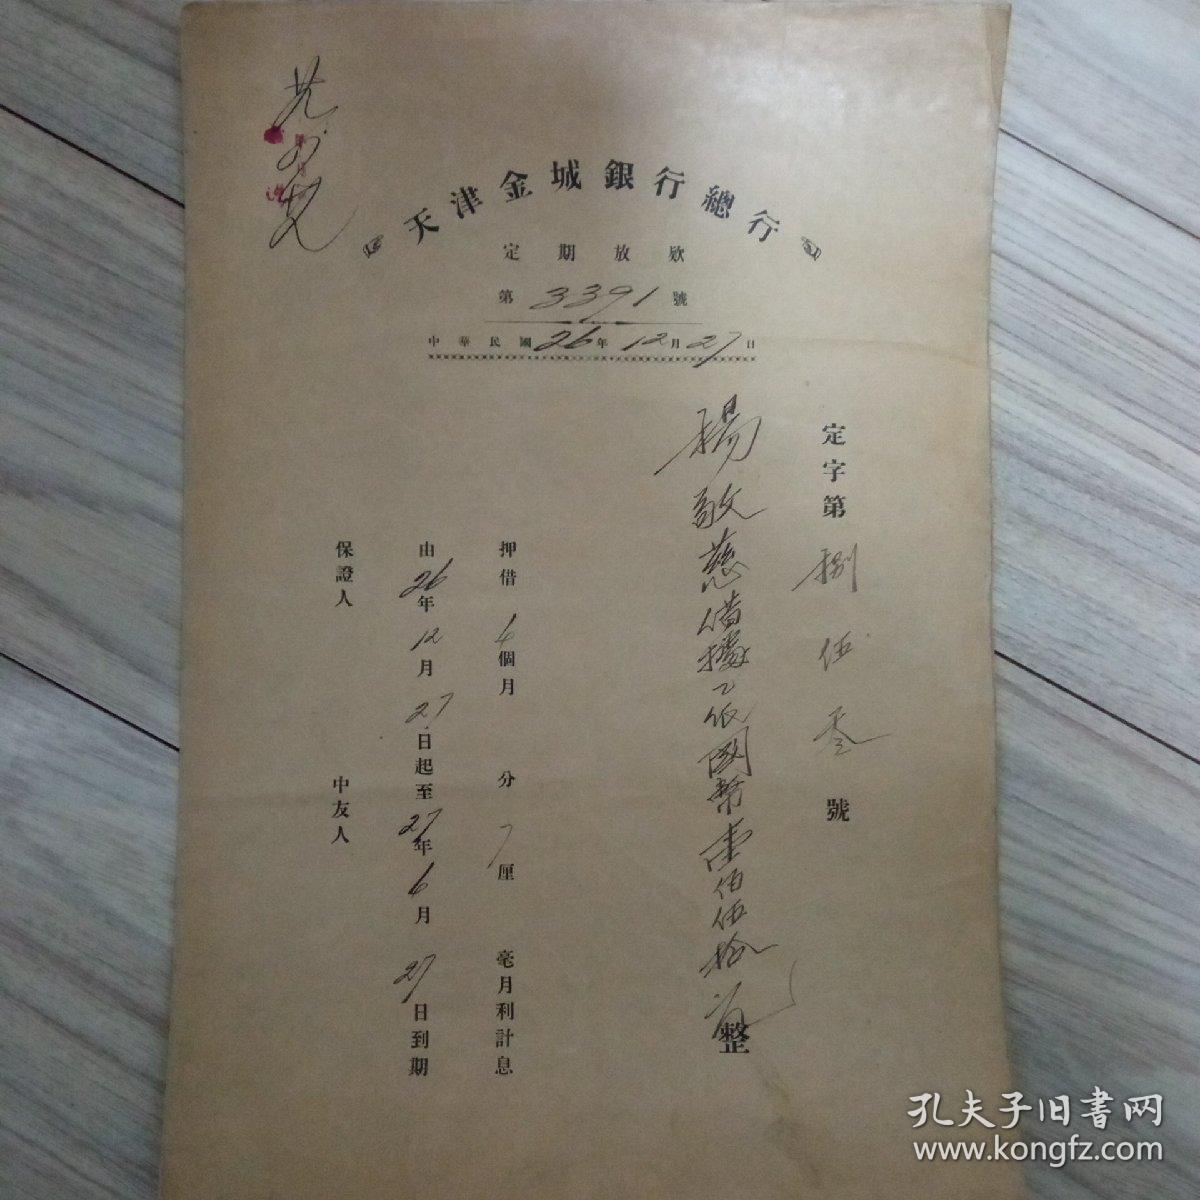 天津金城銀行總行
定期放欵
第3391號
中華民國26年12月27日
定字第捌伍叁號
楊敬慈借 國幣壹佰伍拾元整
押借6個月 分7厘 毫月利計息
由26年12月27日起至27年6月27日到期
保證人 中友人
孔夫子旧书网
www.kongfz.com